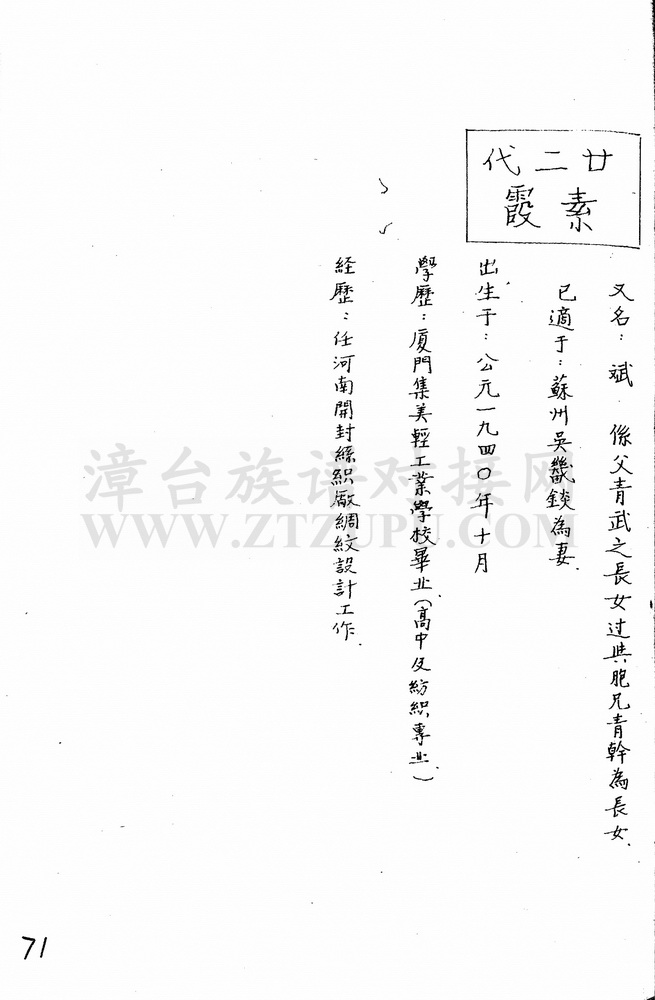 廿二代
素霞
又名：斌　係父青武之長女过與胞兄青幹為長女.
已適于：蘇州吳幾錟為妻.
出生于：公元一九四〇年十月
學歷：厦門集美輕工業學校畢业(高中及紡織專业.)
经歷：任河南開封絲織廠綢紋設計工作.
漳台族谱对接网
WWW.ZTZUPU.COM
71